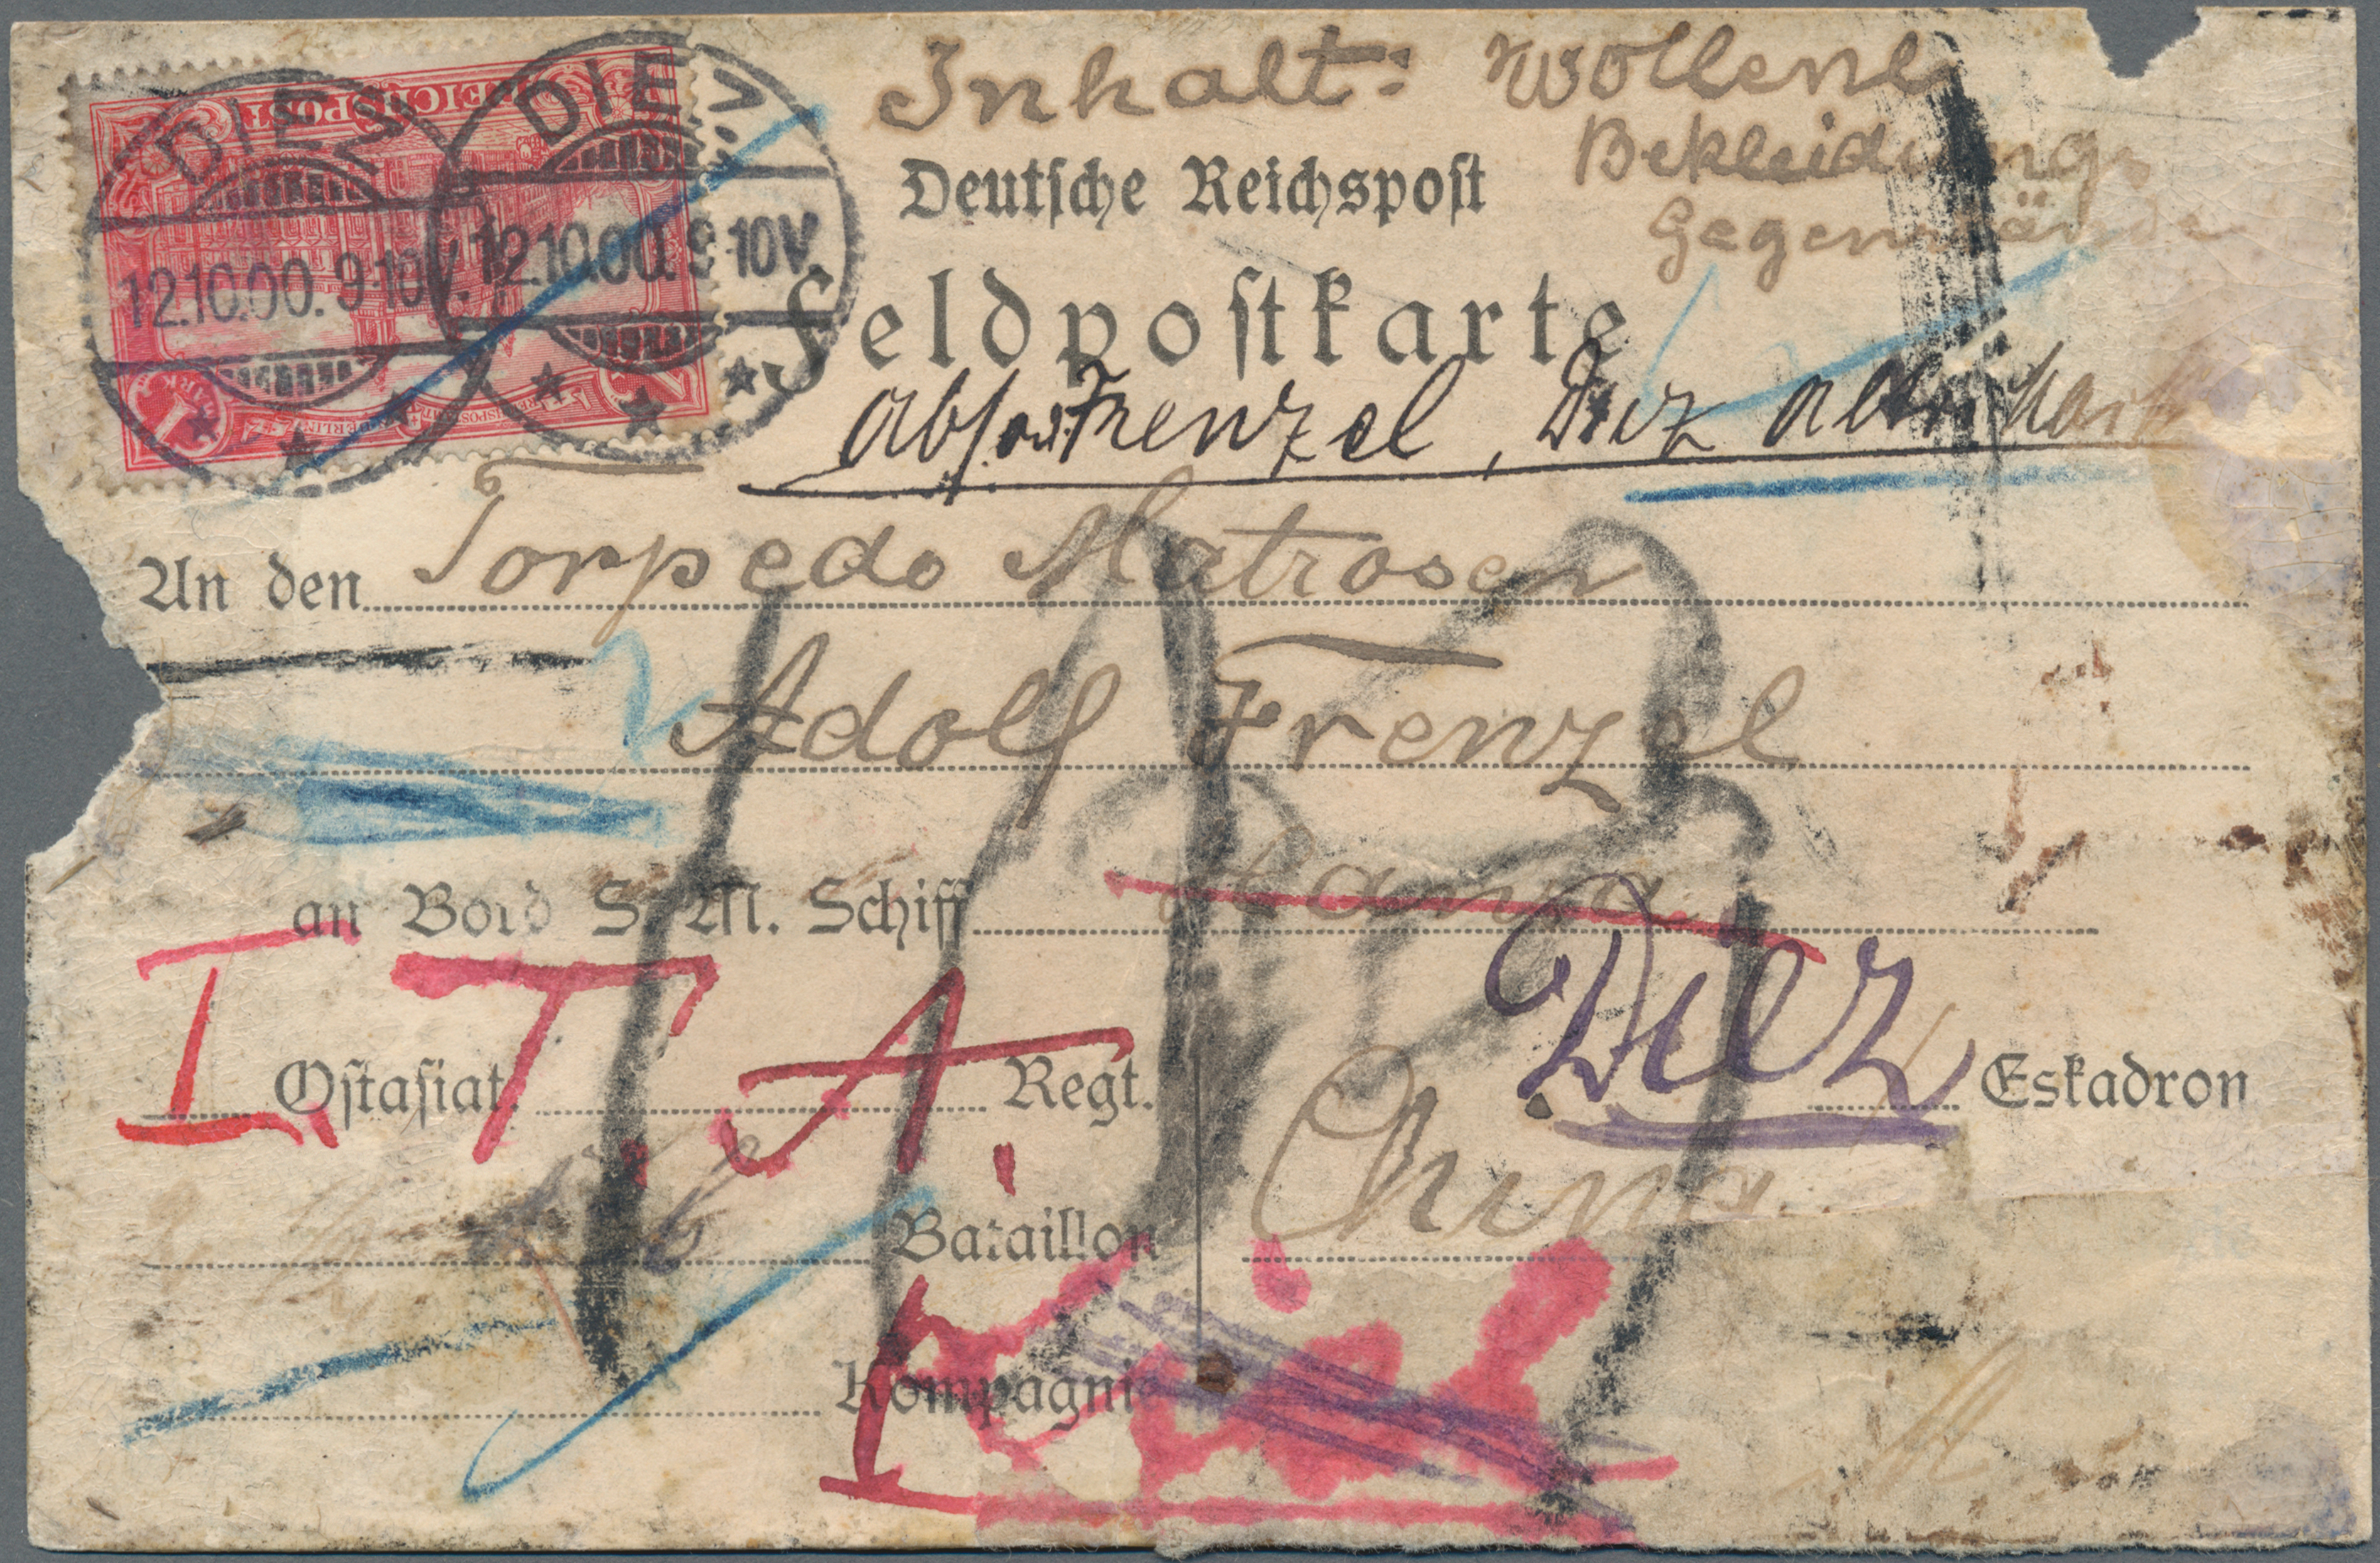 REICHSPOST
DIEZ
12.10.00. 9-10V.
DIEZ
12.10.00. 9-10V.
1 MARK
Inhalt: wollene
Bekleidung
Gegenstände
Deutsche Reichspost
Feldpostkarte
Frenzel, Diez
An den Torpedo Matrosen
Adolf Frenzel
an Bord S. M. Schiff
Diez
I. T. A.
Ostasiat. Regt. Eskadron
China
Bataillon
Kompagnie